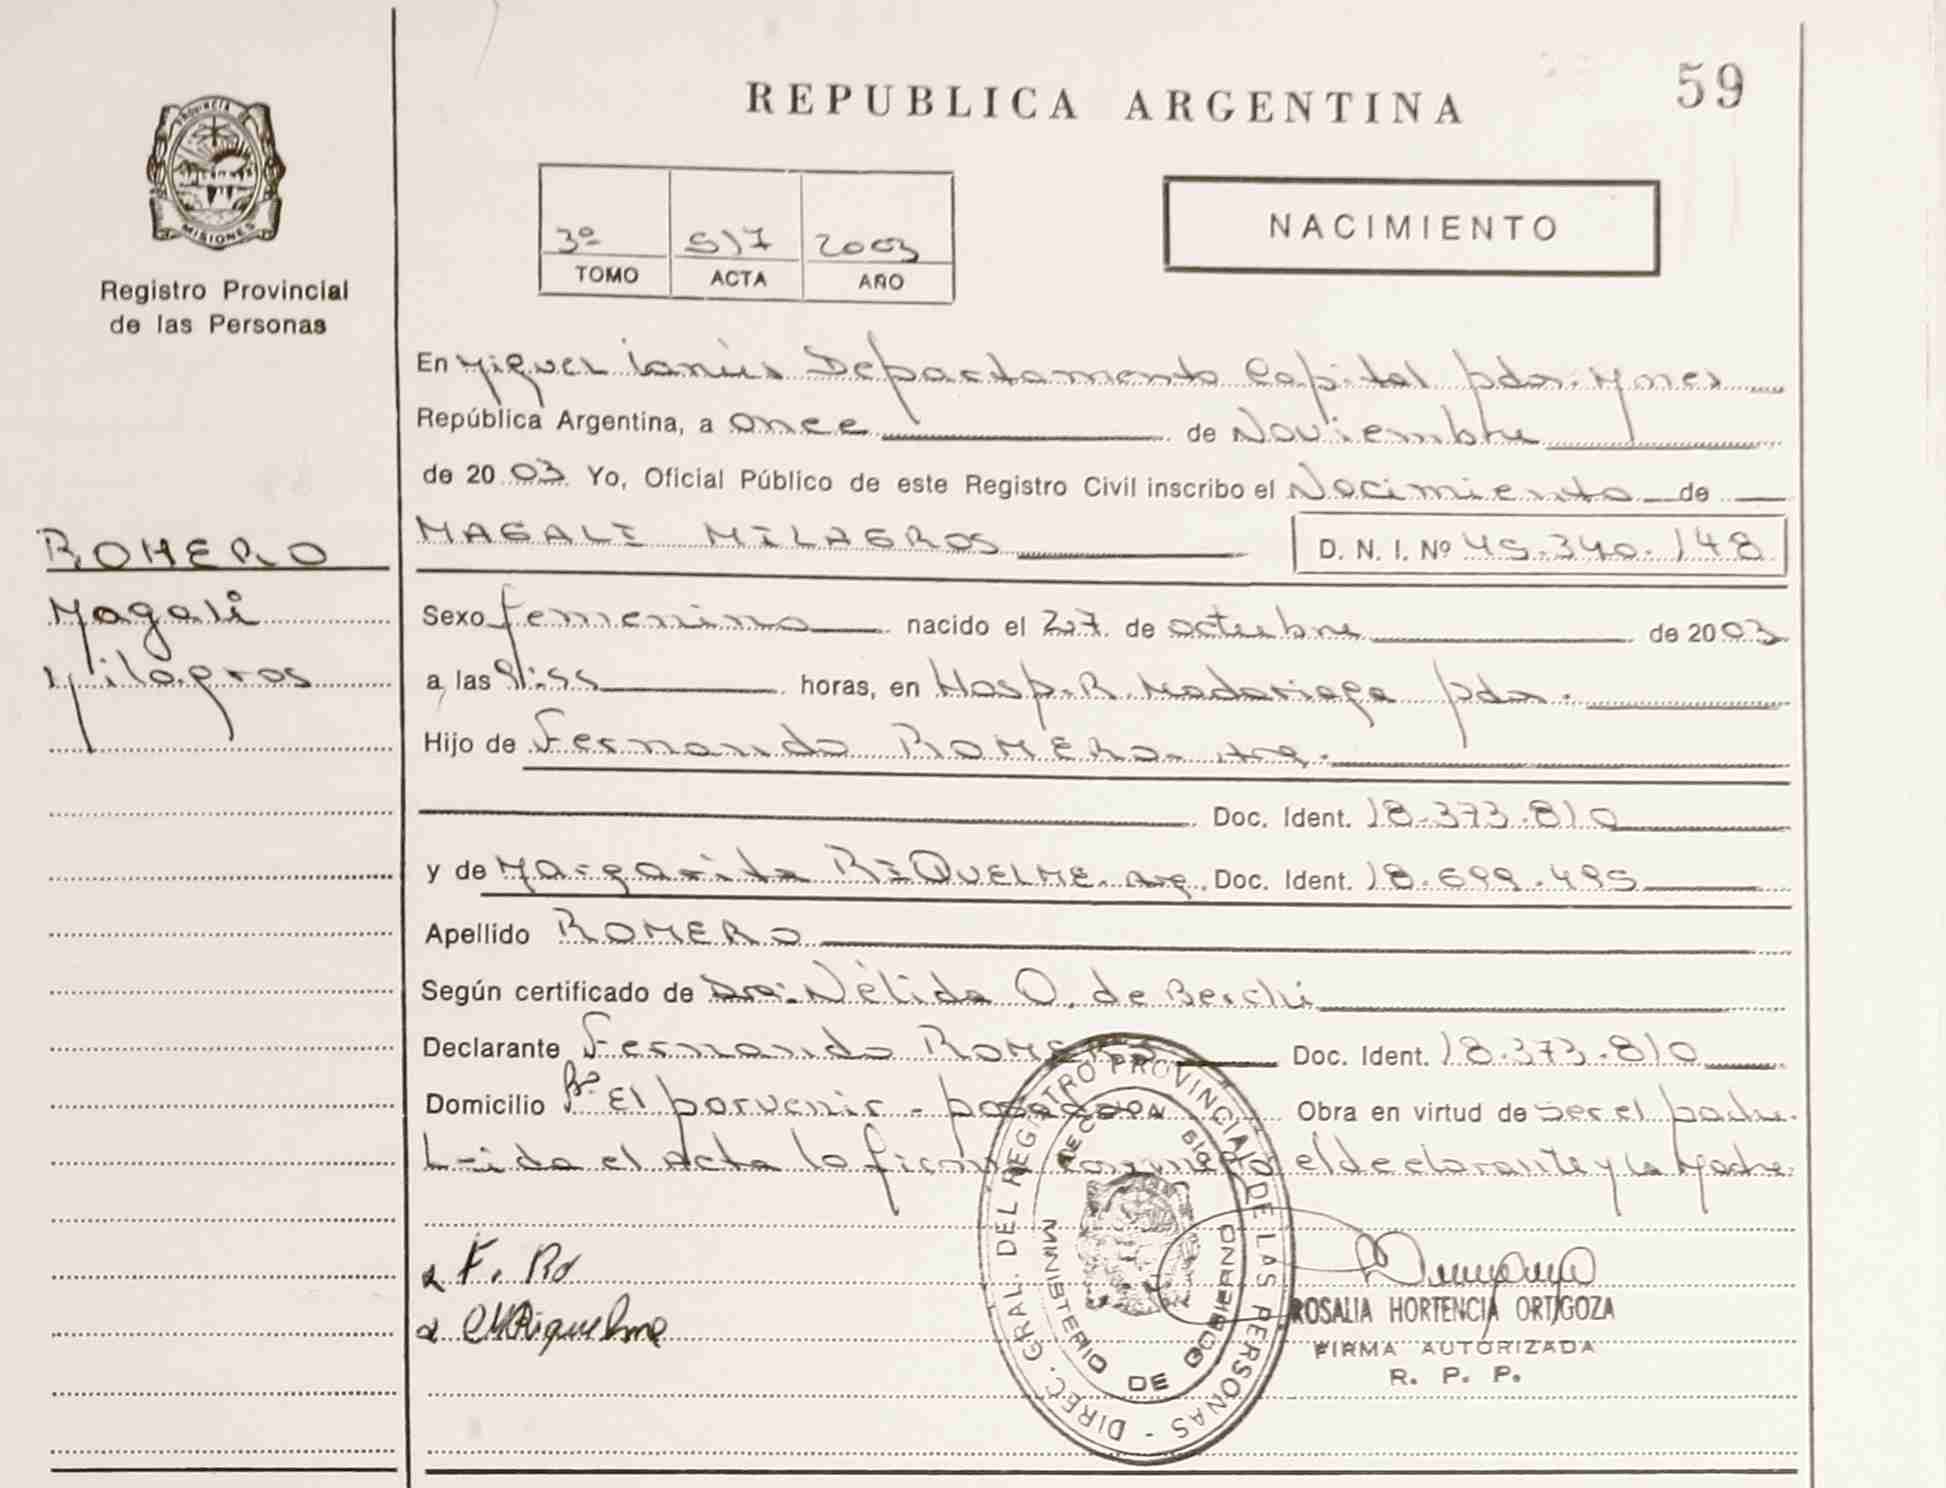 REPUBLICA ARGENTINA
59
PROVINCIA DE
MISIONES
Registro Provincial
de las Personas
3º 517 2003
TOMO ACTA AÑO
NACIMIENTO
En Miguel Lanús Departamento Capital pdas. Mnes
República Argentina, a once de Noviembre
de 2003 Yo, Oficial Público de este Registro Civil inscribo el Nacimiento de
MAGALI MILAGROS D. N. I. Nº 45.340.148
ROMERO
Magali
Milagros
Sexo femenino nacido el 27 de octubre de 2003
a las horas, en Hosp. R. Madariaga pdas.
Hijo de Fernando ROMERO- Arg.
Doc. Ident. 18.373.810
y de Margarita RIQUELME- Arg. Doc. Ident. 18.699.495
Apellido ROMERO
Según certificado de Dra. Nélida O. de Berchi
Declarante Fernando ROMERO Doc. Ident. 18.373.810
Domicilio Bº El porvenir - posadas Obra en virtud de ser el padre.
Leida el Acta la firma el declarante y la Madre.
F. Ro
M Riquelme
DIREC. GRAL. DEL REGISTRO PROVINCIAL DE LAS PERSONAS -
MINISTERIO DE GOBIERNO
ROSALIA HORTENCIA ORTIGOZA
FIRMA AUTORIZADA
R. P. P.